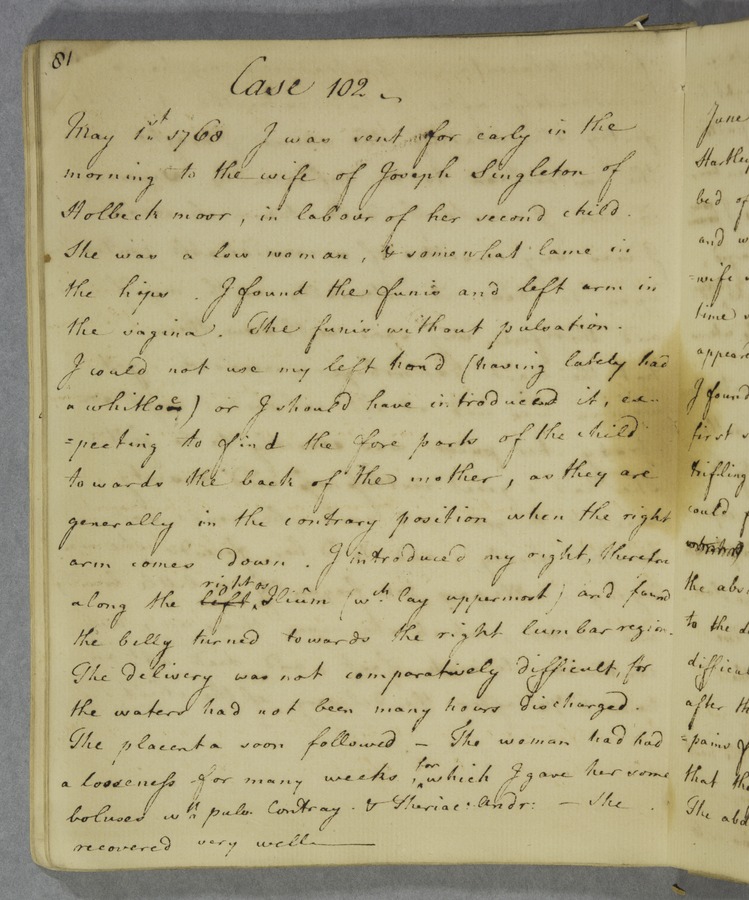 81
Case 102
May 1st 1768 I was sent for early in the
morning to the wife of Joseph Singleton of
Holbeck moor, in labour of her second child.
She was a low woman, & somewhat lame in
the hips. I found the funis and left arm in
the vagina. The funis without pulsation.
I could not use my left hand (having lately had
a whitloe) or I should have introduced it, ex-
=pecting to find the fore parts of the child
towards the back of the mother, as they are
generally in the contrary position when the right
arm comes down. I introduced my right, therefore
along the left right os Ilium (wch. lay uppermost) and found
the belly turned towards the right lumbar region.
The delivery was not comparatively difficult, for
the waters had not been many hours discharged.
The placenta soon followed — The woman had had
a looseness for many weeks, for which I gave her some
boluses wth pulv. Contray. & Theriac: Andr: — She
recovered very well
June
Hartley
bed of
and w
=wife
time
appear
I found
first s
trifling
could
the abs
to the d
difficul
after th
=pains
that the
The abd